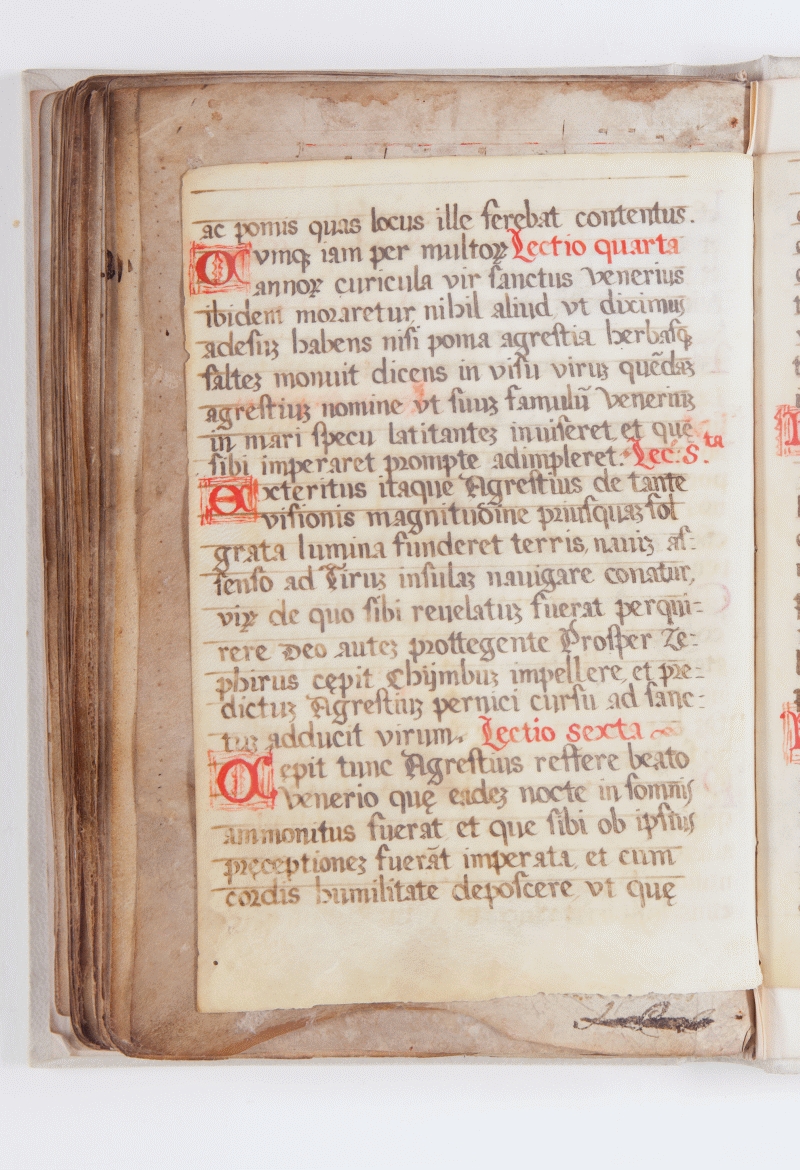 ac pomis quas locus ille ferebat contentus.
Cvmqꝫ iam per multoꝝ Lectio quarta
annoꝝ curicula vir sanctus Venerius
ibidem moraretur nihil aliud vt diximꝰ
adesuꝫ habens nisi poma agrestia herbasqꝫ
salteꝫ monuit dicens in visu viruꝫ quēdaꝫ
agrestiuꝫ nomine vt suuꝫ famulū Veneriuꝫ
in mari specu latitanteꝫ inuiseret et que
sibi imperaret prompte adimpleret. Lec: S.ta
Exteritus itaque Agrestius de tante
visionis magnitudine priusquaꝫ sol
grata lumina funderet terris, nauiꝫ as:
senso ad Tiruꝫ insulaꝫ nauigare conatur,
viꝝ de quo sibi reuelatuꝫ fuerat perqui=
rere Deo auteꝫ prottegente Prosper Ze:
phirus cępit Chijmbuꝫ impellere, et pre=
dictuꝫ Agrestiuꝫ pernici cursu ad sanc:
tuꝫ adducit virum. Lectio sexta
Cepit tunc Agrestius reffere beato
Venerio quę eadeꝫ nocte in somnis
ammonitus fuerat et que sibi ob ipsius
pręceptioneꝫ fuerāt imperata, et cum
cordis humilitate deposcere vt quę